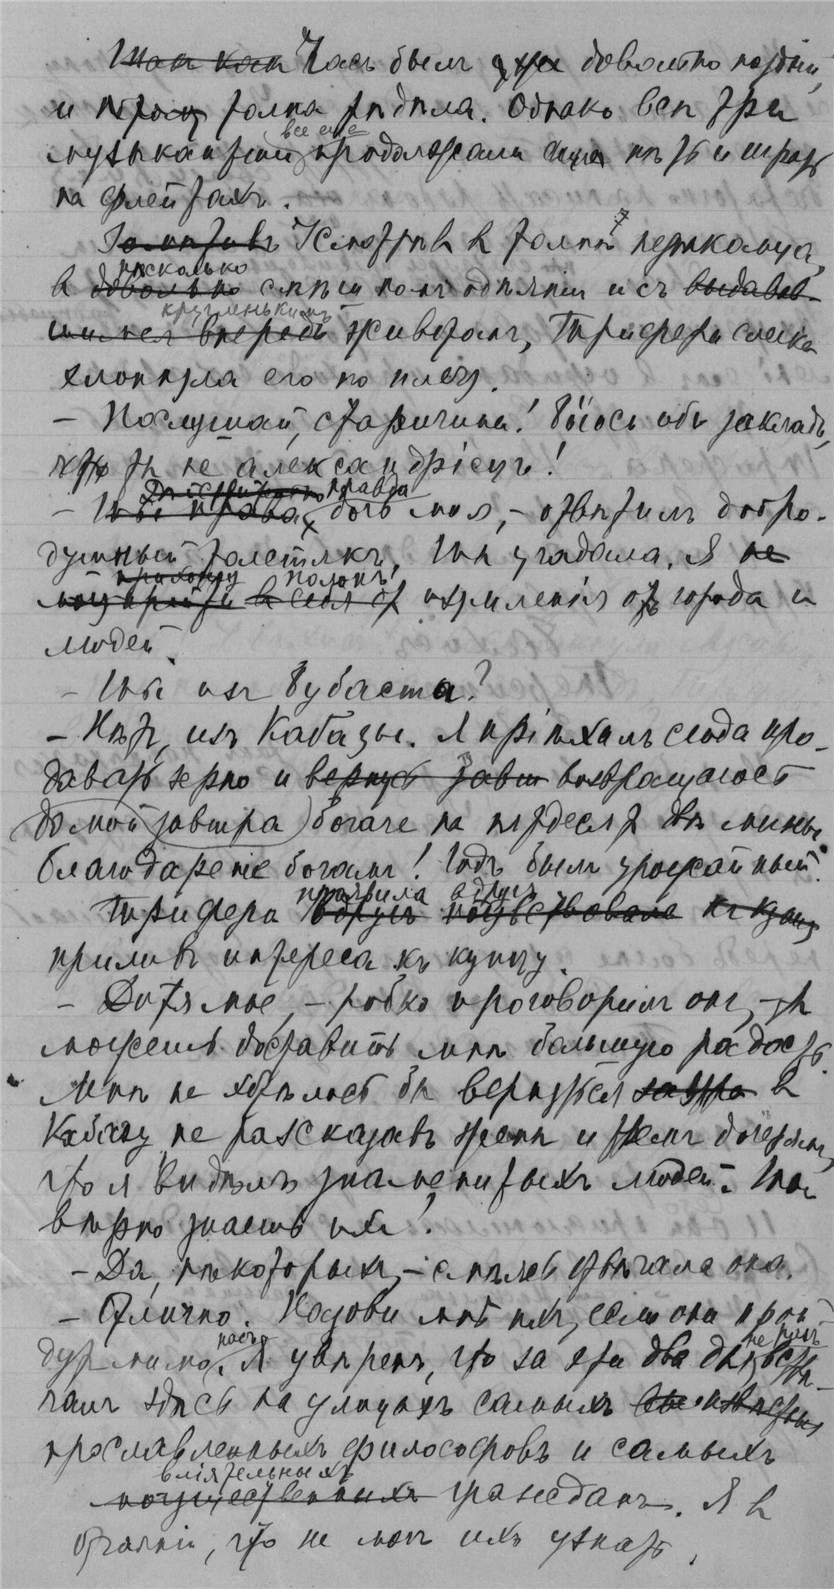 Часъ былъ уже довольно поздній,
и толпа рѣдѣла. Однако всѣ три
музыкантши все еще продолжали пѣть и играть
на флейтахъ.
Усмотрѣвъ въ толпѣ незнакомца,
въ нѣсколько смѣшномъ одѣяніи и съ
кругленькимъ животомъ, Трифера слегка
хлопнула его по плечу.
– Послушай, старичина! Бьюсь объ закладъ,
что ты не александріецъ!
– Правда, дочь моя, – отвѣтилъ добро-
душный толстякъ, ты угадала. Я
полонъ изумленія отъ города и
людей.
– Ты изъ Бубаста?
– Нѣтъ, изъ Кабазы. Я пріѣхалъ сюда про-
давать зерно и возвращаюсь
домой завтра богаче на пятьдесятъ двѣ мины.
Благодареніе богамъ! Годъ былъ урожайный.
Трифера вдругъ
приливъ интереса къ купцу.
– Дитя мое, – робко проговорилъ онъ, – ты
можешь доставить мнѣ большую радость.
Мнѣ не хотѣлось бы вернуться въ
Кабазу, не разсказавъ женѣ и тремъ дочерямъ,
что я видѣлъ знаменитыхъ людей. Ты
вѣрно знаешь ихъ?
– Да, нѣкоторыхъ, – смѣясь отвѣчала она.
– Отлично. Назови мнѣ ихъ, если они прой-
дутъ мимо насъ. Я увѣренъ, что за эти два дня встрѣ-
чалъ здѣсь на улицахъ самыхъ
прославленныхъ философовъ и самыхъ
вліятельныхъ гражданъ. Я въ
отчаяніи, что не могъ ихъ узнать.